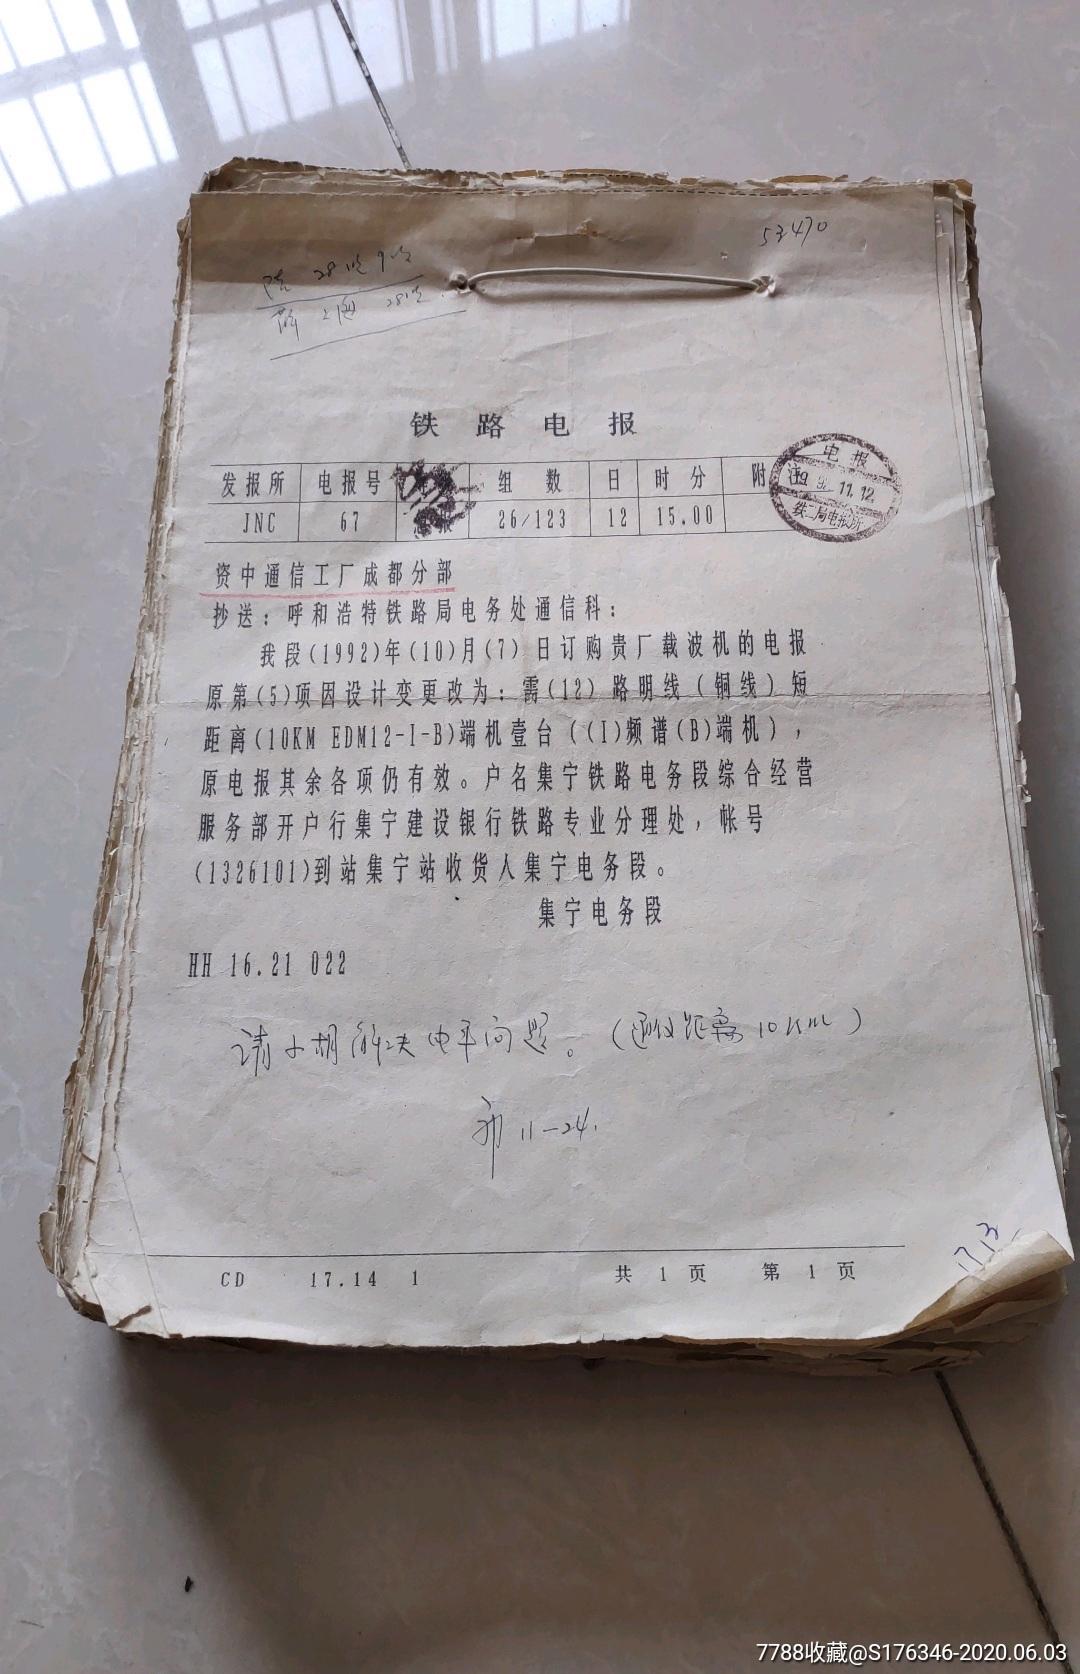 53470
28
上海 28
铁路电报
发报所 电报号 组数 日 时分 附注
JNC 67 26/123 12 15.00
电报
1992.11.12
铁二局电报所
资中通信工厂成都分部
抄送：呼和浩特铁路局电务处通信科：
我段(1992)年(10)月(7)日订购贵厂载波机的电报
原第(5)项因设计变更改为：需(12)路明线（铜线）短
距离(10KM EDM12-I-B)端机壹台((I)频谱(B)端机)，
原电报其余各项仍有效。户名集宁铁路电务段综合经营
服务部开户行集宁建设银行铁路专业分理处，帐号
(1326101)到站集宁站收货人集宁电务段。
集宁电务段
HH 16.21 022
请小胡解决电平问题。（通仪距离10KM）
11-24.
CD 17.14 1 共 1 页 第 1 页
7788收藏@S176346-2020.06.03